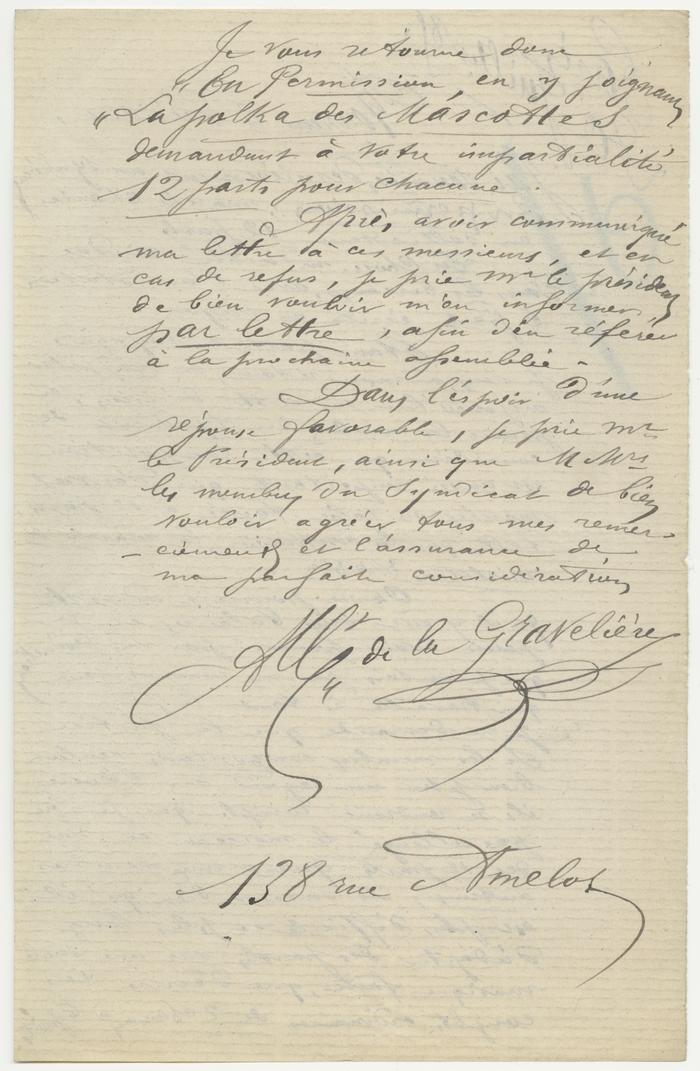 Je vous retourne donc
"En Permission, en y joignant
"La polka des Mascottes
demandant à votre impartialité
12 parts pour chacune.
Après avoir communiqué
ma lettre à ces messieurs, et en
cas de refus, je prie Mr le président
de bien vouloir m'en informer,
par lettre, afin d'en référer
à la prochaine assemblée -
Dans l'espoir d'une
réponse favorable, je prie Mr
le Président, ainsi que MMrs
les membres du Syndicat de bien
vouloir agréer tous mes remer-
-ciements et l'assurance de
ma parfaite considération
de la Gravelière
138 rue Amelot